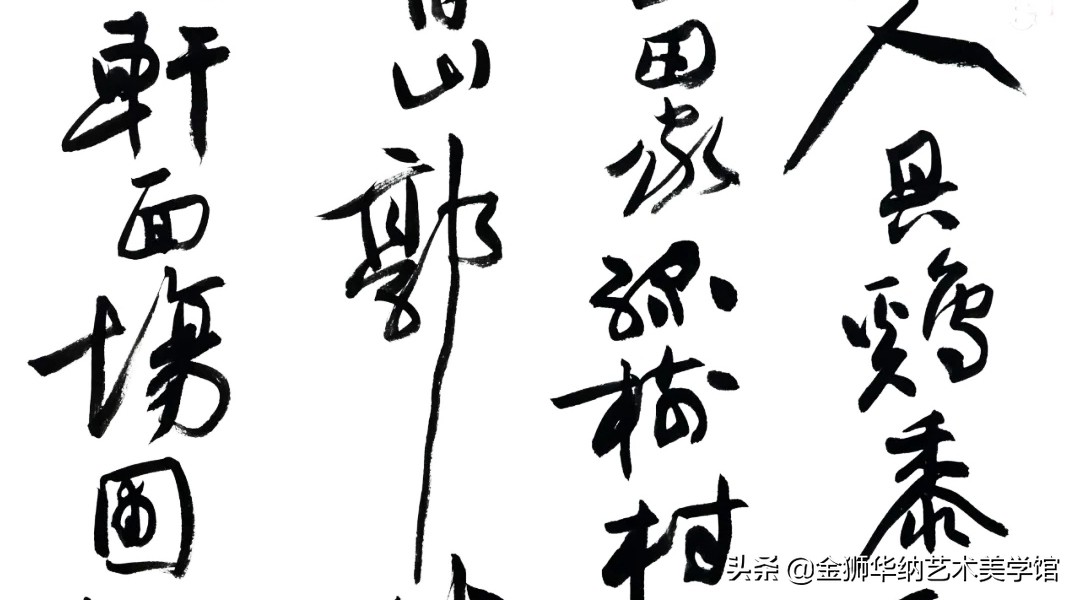 人具鷄黍
田家綠樹村
山郭
軒面場圃
头条 @金狮华纳艺术美学馆